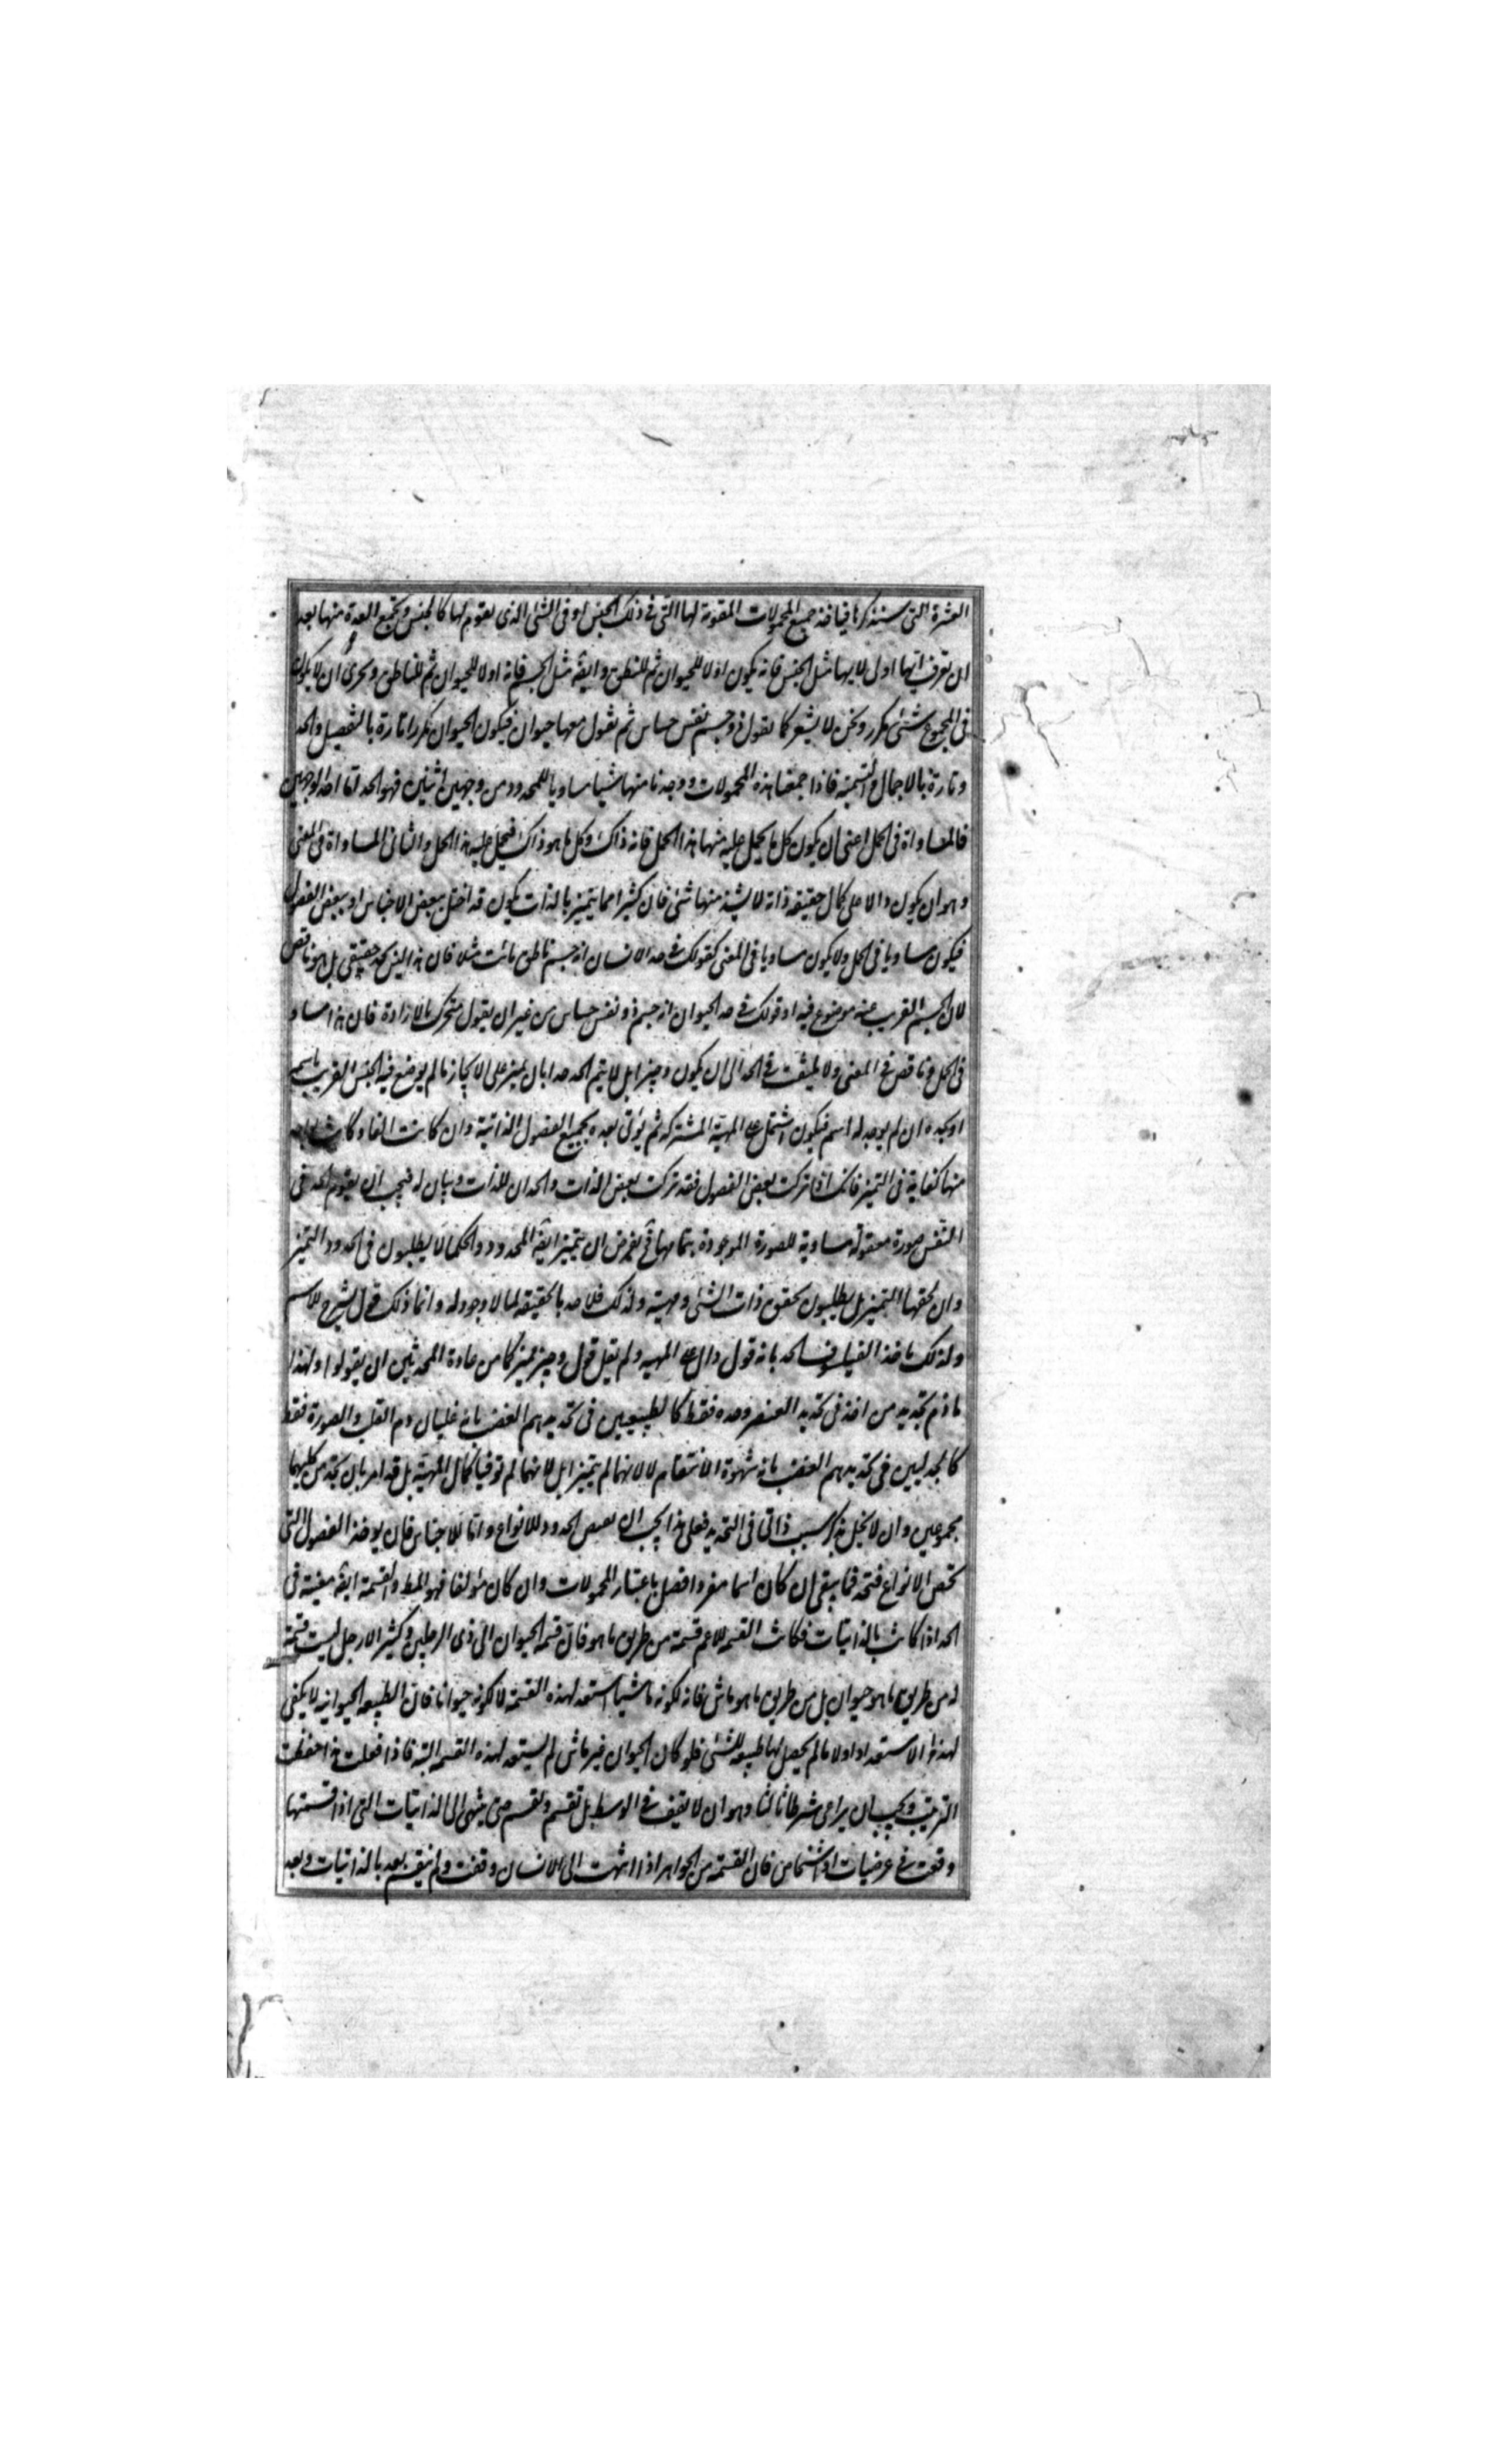 العشرة التى سنذكرها فياخذ جميع المحمولات المقومة لها التى فى ذلك الجنس او فى الشئ الذى يقوم لها كالجنس ويجمع العدة منها بعد
ان يعرف ايها اول لايها مثل الجنس فانه يكون اولا للحيوان ثم للنطق وايضه مثل الجسم فانه اولا للحيوان ثم للناطق ويحرى ان لا يكون
فى المجموع شئ مكرر ونحن لا يشعر كما نقول ذو جسم نفس حساس ثم نقول معها حيوان فيكون الحيوان مكررا تارة بالتفصيل والحد
وتارة بالاجمال والتسمية فاذا جمعنا هذه المحمولات ووجدنا منها شيا مساويا للمحدود من وجهين اثنين فهو الحد اما احد الوجهين
فالمساواة فى الحمل اعنى ان يكون كل ما يحمل عليه منها هذا الحمل فانه ذاك وكل ما هو ذاك فيحمل عليه هذا الحمل والثانى المساواة فى المعنى
وهو ان يكون دالا على كمال حقيقة ذاته لا يشذ منها شئ فان كثيرا مما يتميز بالذات يكون قد اخل ببعض الاجناس او ببعض الفصول
فيكون مساويا فى الحمل ولا يكون مساويا فى المعنى كقولك فى حد الانسان انه جسم ناطق مائت مثلا فان هذا ليس بحد حقيقى بل هو ناقص
لان الجسم القريب عنه موضوع فيه او قولك فى حد الحيوان انه جسم ذو نفس حساس من غير ان يقول متحرك بالارادة فان هذا مساو
فى الحمل وناقص فى المعنى ولا يلتفت فى الحد الى ان يكون وجيزا بل لا يتم الحد حدا بان يميز على الايجاز ما لم يوضع فيه الجنس القريب باسمه
او بحده ان لم يوجد له اسم فيكون اشتمل على المهية المشتركة ثم يؤتى بعده بجميع الفصول الذاتية وان كانت الفا وكانت
منها كفاية فى التميز فانك اذا تركت بعض الفصول فقد تركت بعض الذات والحد ان للذات وبيان له فيجب ان يقوم الحد فى
النفس صورة معقولة مساوية للصورة الموجودة بتمامها فح يعرض ان يتميز ايضه المحدود والحكما لا يطلبون فى الحدود التميز
وان لحقها التميز بل يطلبون تحقق ذات الشئ ومهيته ولذلك فلا حد بالحقيقة لما لا وجود له وانما ذلك قول يشرح للاسم
ولذلك ما خذ الفيلسوف الحد بانه قول دال على المهيه ولم يقل قول وجيز مميز كما من عادة المحدثين ان يقولوا ولهذا
ما ذم تحديد من اخذ فى تحديد العنصر وحده فقط كالطبيعيين فى تحديدهم الغضب بانه غليان دم القلب والصورة فقط
كالجدليين فى تحديدهم الغضب بانه شهوة الانتقام لا لانهما لم يتميزا بل لانهما لم توفيا كمال المهية بل قد امر بان يحد من كليهما
مجموعين وان لا نخل بذكر سبب ذاتى فى التحديد فعلى هذا يجب ان الحدود للانواع واما للاجناس فان يوخذ الفصول التى
تخص الانواع فتحذف فما يبقى ان كان اسما مفردا فصل باعتبار المحمولات وان كان مؤلفا فهو المط والقسمة ايضه معينة فى
الحد اذا كانت بالذاتيات فكانت القسمه للاعم قسمة من طريق ما هو فان قسمه الحيوان الى ذى الرجلين وكثير الارجل ليست قسمة
له من طريق ما هو حيوان بل من طريق ما هو ماش فانه لكونه ماشيا استعد لهذه القسمة لا لكونه حيوانا فان الطبيعه الحيوانيه لا يكفى
لهذا الاستعداد اولا مالم يحصل لها طبيعه للشئ فلو كان الحيوان غير ماش لم يستعد لهذه القسمه البته فاذا فعلت هذا حفظت
الترتيب ويجب ان يراعى شرطا ثالثا وهو ان لا يقف فى الوسط بل تقسم وتقسم حتى ينتهى الى الذاتيات التى اذا قسمتها
وقعت فى عرضيات او اشخاص فان القسمة من الجواهر اذا انتهت الى الانسان وقفت ولم ينقسم بعد بالذاتيات وبعد